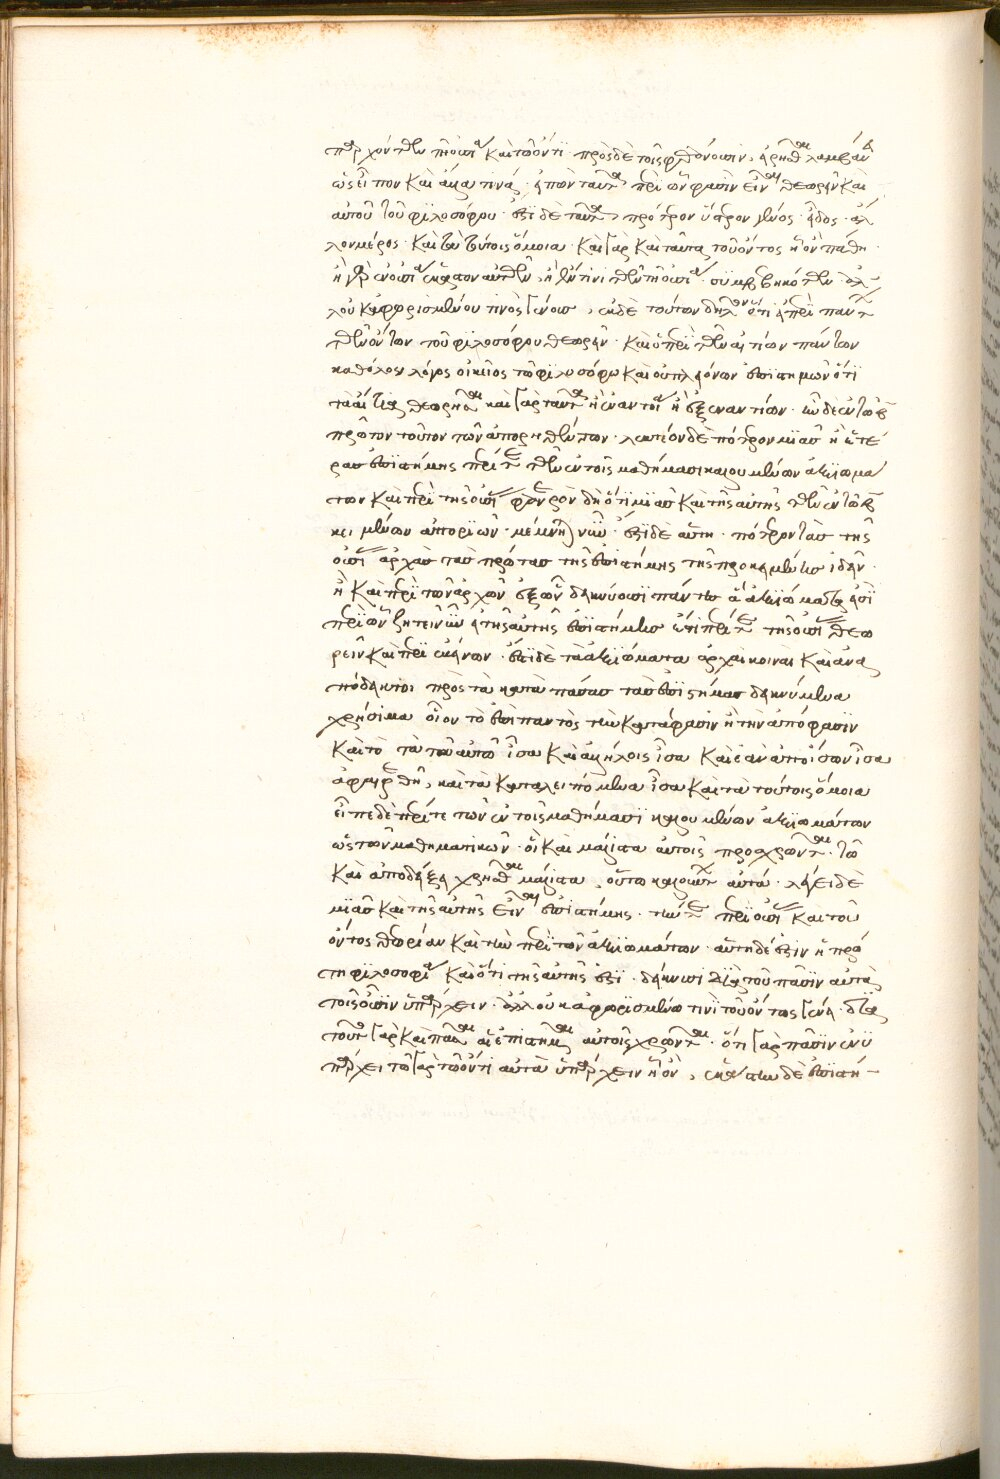 παρχόντων τῆ οὐσία καὶ τῶ ὄντι πρὸς δὲ τοῖς φθάνουσιν
ὡς εἶπον καὶ ἄλλα τινά ταῦτα περὶ ὧν φασὶν εἶναι θεωρεῖν καὶ
αὐτοῦ τοῦ φιλοσόφου ἐστὶ δὲ ταῦτα πρότερον ὕστερον γένος εἶδος ὅλ
λον μέρος καὶ τὰ τούτοις ὅμοια καὶ γὰρ καὶ ταῦτα τοῦ ὄντος ἧ ὂν πάθη
ἢ γὰρ ἐν οὐσία ἕκαστον αὐτῶν, ἢ ἔν τινι τῶν τῆ οὐσία συμβεβηκότων ἀλ
λ' οὐκ ἀφωρισμένου τινὸς γένους, ἐκ δὲ τούτων δῆλον ὅτι εἰ περὶ πάντων
τῶν ὄντων τοῦ φιλοσόφου θεωρεῖν καὶ ὁ περὶ τῶν αἰτίων πάντων
καθόλου λόγος οἰκεῖος τῶ φιλοσόφω καὶ οὐ πλειόνων ἐπιστημῶν ὅτι
τὰ αἴτια θεωρῆσαι καὶ γὰρ ταῦτα ἢ ἐναντία ἢ ἐξ ἐναντίων ἦν δὲ ἐν τῶ β
πρῶτον τοῦτον τῶν ἀπορηθέντων λοιπὸν δὲ πότερον μιᾶς ἢ ἑτέ
ρας ἐπιστήμης περί τε τῶν ἐν τοῖς μαθήμασι καλουμένων ἀξιωμά
των καὶ περὶ τῆς οὐσίας φανερὸν δὴ ὅτι μιᾶς καὶ τῆς αὐτῆς τῶν ἐν τῶ β
κειμένων ἀποριῶν μέμνηται νῦν ἐστὶ δὲ αὕτη πότερον τὰς τῆς
οὐσίας ἀρχὰς τὰς πρώτας τῆς ἐπιστήμης τῆς προκειμένης ἰδεῖν
ἢ καὶ περὶ τῶν ἀρχῶν ἐξ ὧν δεικνύουσι πάντες ἃ ἀξιώματα εἰσὶ
περὶ ὧν ζητεῖ νῦν εἰ τῆς αὐτῆς ἐπιστήμης ἐστὶ περί τε τῆς οὐσίας θεω
ρεῖν καὶ περὶ ἐκείνων ἐστὶ δὲ τὰ ἀξιώματα ἀρχαὶ κοιναὶ καὶ ἀνα
πόδεικτοι πρὸς τὰ κατὰ πάσας τὰς ἐπιστήμας δεικνύμενα
χρήσιμα οἷον τὸ ἐπὶ παντὸς τὴν κατάφασιν ἢ τὴν ἀπόφασιν
καὶ τὸ τὰ τῶ αὐτῶ ἴσα καὶ ἀλλήλοις ἴσα καὶ ἐὰν ἀπὸ ἴσων ἴσα
ἀφαιρεθῆ, καὶ τὰ καταλειπόμενα ἴσα καὶ τὰ τούτοις ὅμοια
εἶπε δὲ περί τε τῶν ἐν τοῖς μαθήμασι καλουμένων ἀξιωμάτων
ὡς τῶν μαθηματικῶν οἳ καὶ μάλιστα αὐτοῖς προσχρῶνται τῶ
καὶ ἀποδείξει χρῆσθαι μάλιστα, οὕτω καλούντων αὐτά λέγει δὲ
μιᾶς καὶ τῆς αὐτῆς εἶναι ἐπιστήμης τήν τε περὶ οὐσίας καὶ τοῦ
ὄντος θεωρίαν καὶ τὴν περὶ τῶν ἀξιωμάτων αὕτη δέ ἐστιν ἡ πρώ
τη φιλοσοφία καὶ ὅτι τῆς αὐτῆς ἐστὶ δείκνυσι διὰ τοῦ πᾶσιν αὐτὰ
τοῖς οὖσιν ὑπάρχειν ἀλλ' οὐκ ἀφωρισμένω τινὶ τοῦ ὄντος γένει διὰ
τοῦτο γὰρ καὶ πᾶσαι αἱ ἐπιστῆμαι αὐτοῖς χρῶνται ὅτι γὰρ πᾶσιν ἐνυ
πάρχει τῶ γὰρ τῶ ὄντι αὐτὰ ὑπάρχειν ἧ ὄν, ἑκάστην δὲ ἐπιστή-